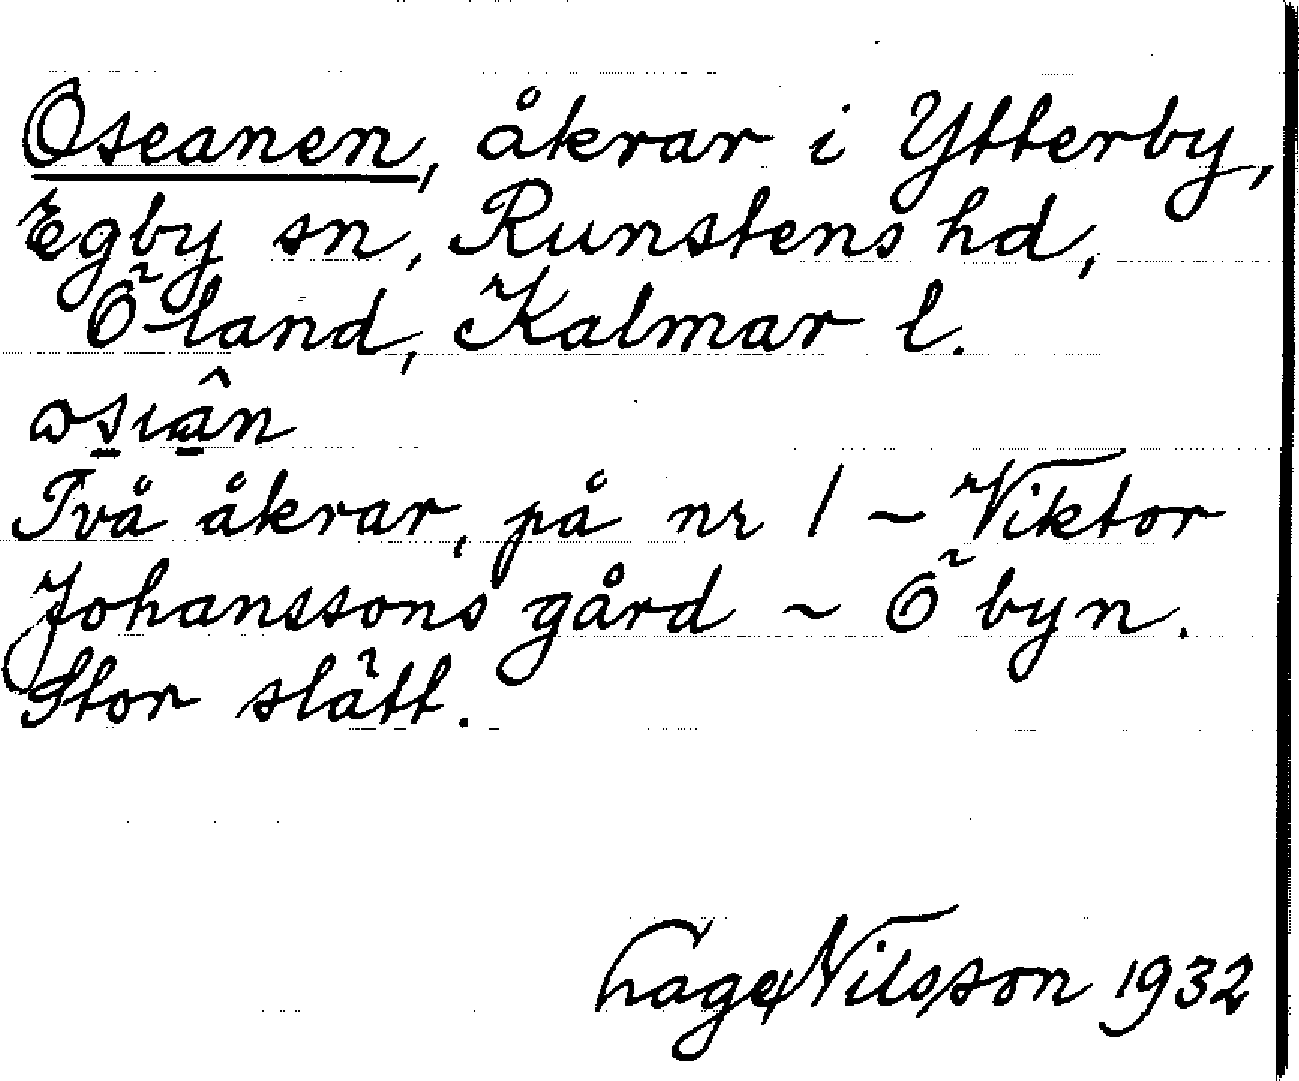 Oseanen, åkrar i Ytterby,
Egby sn, Runstens hd,
Öland, Kalmar l.
Två åkrar, på nr 1 ~ Viktor
Johanssons gård ~ Ö byn.
Stor slätt.
Hage Nilsson 1932